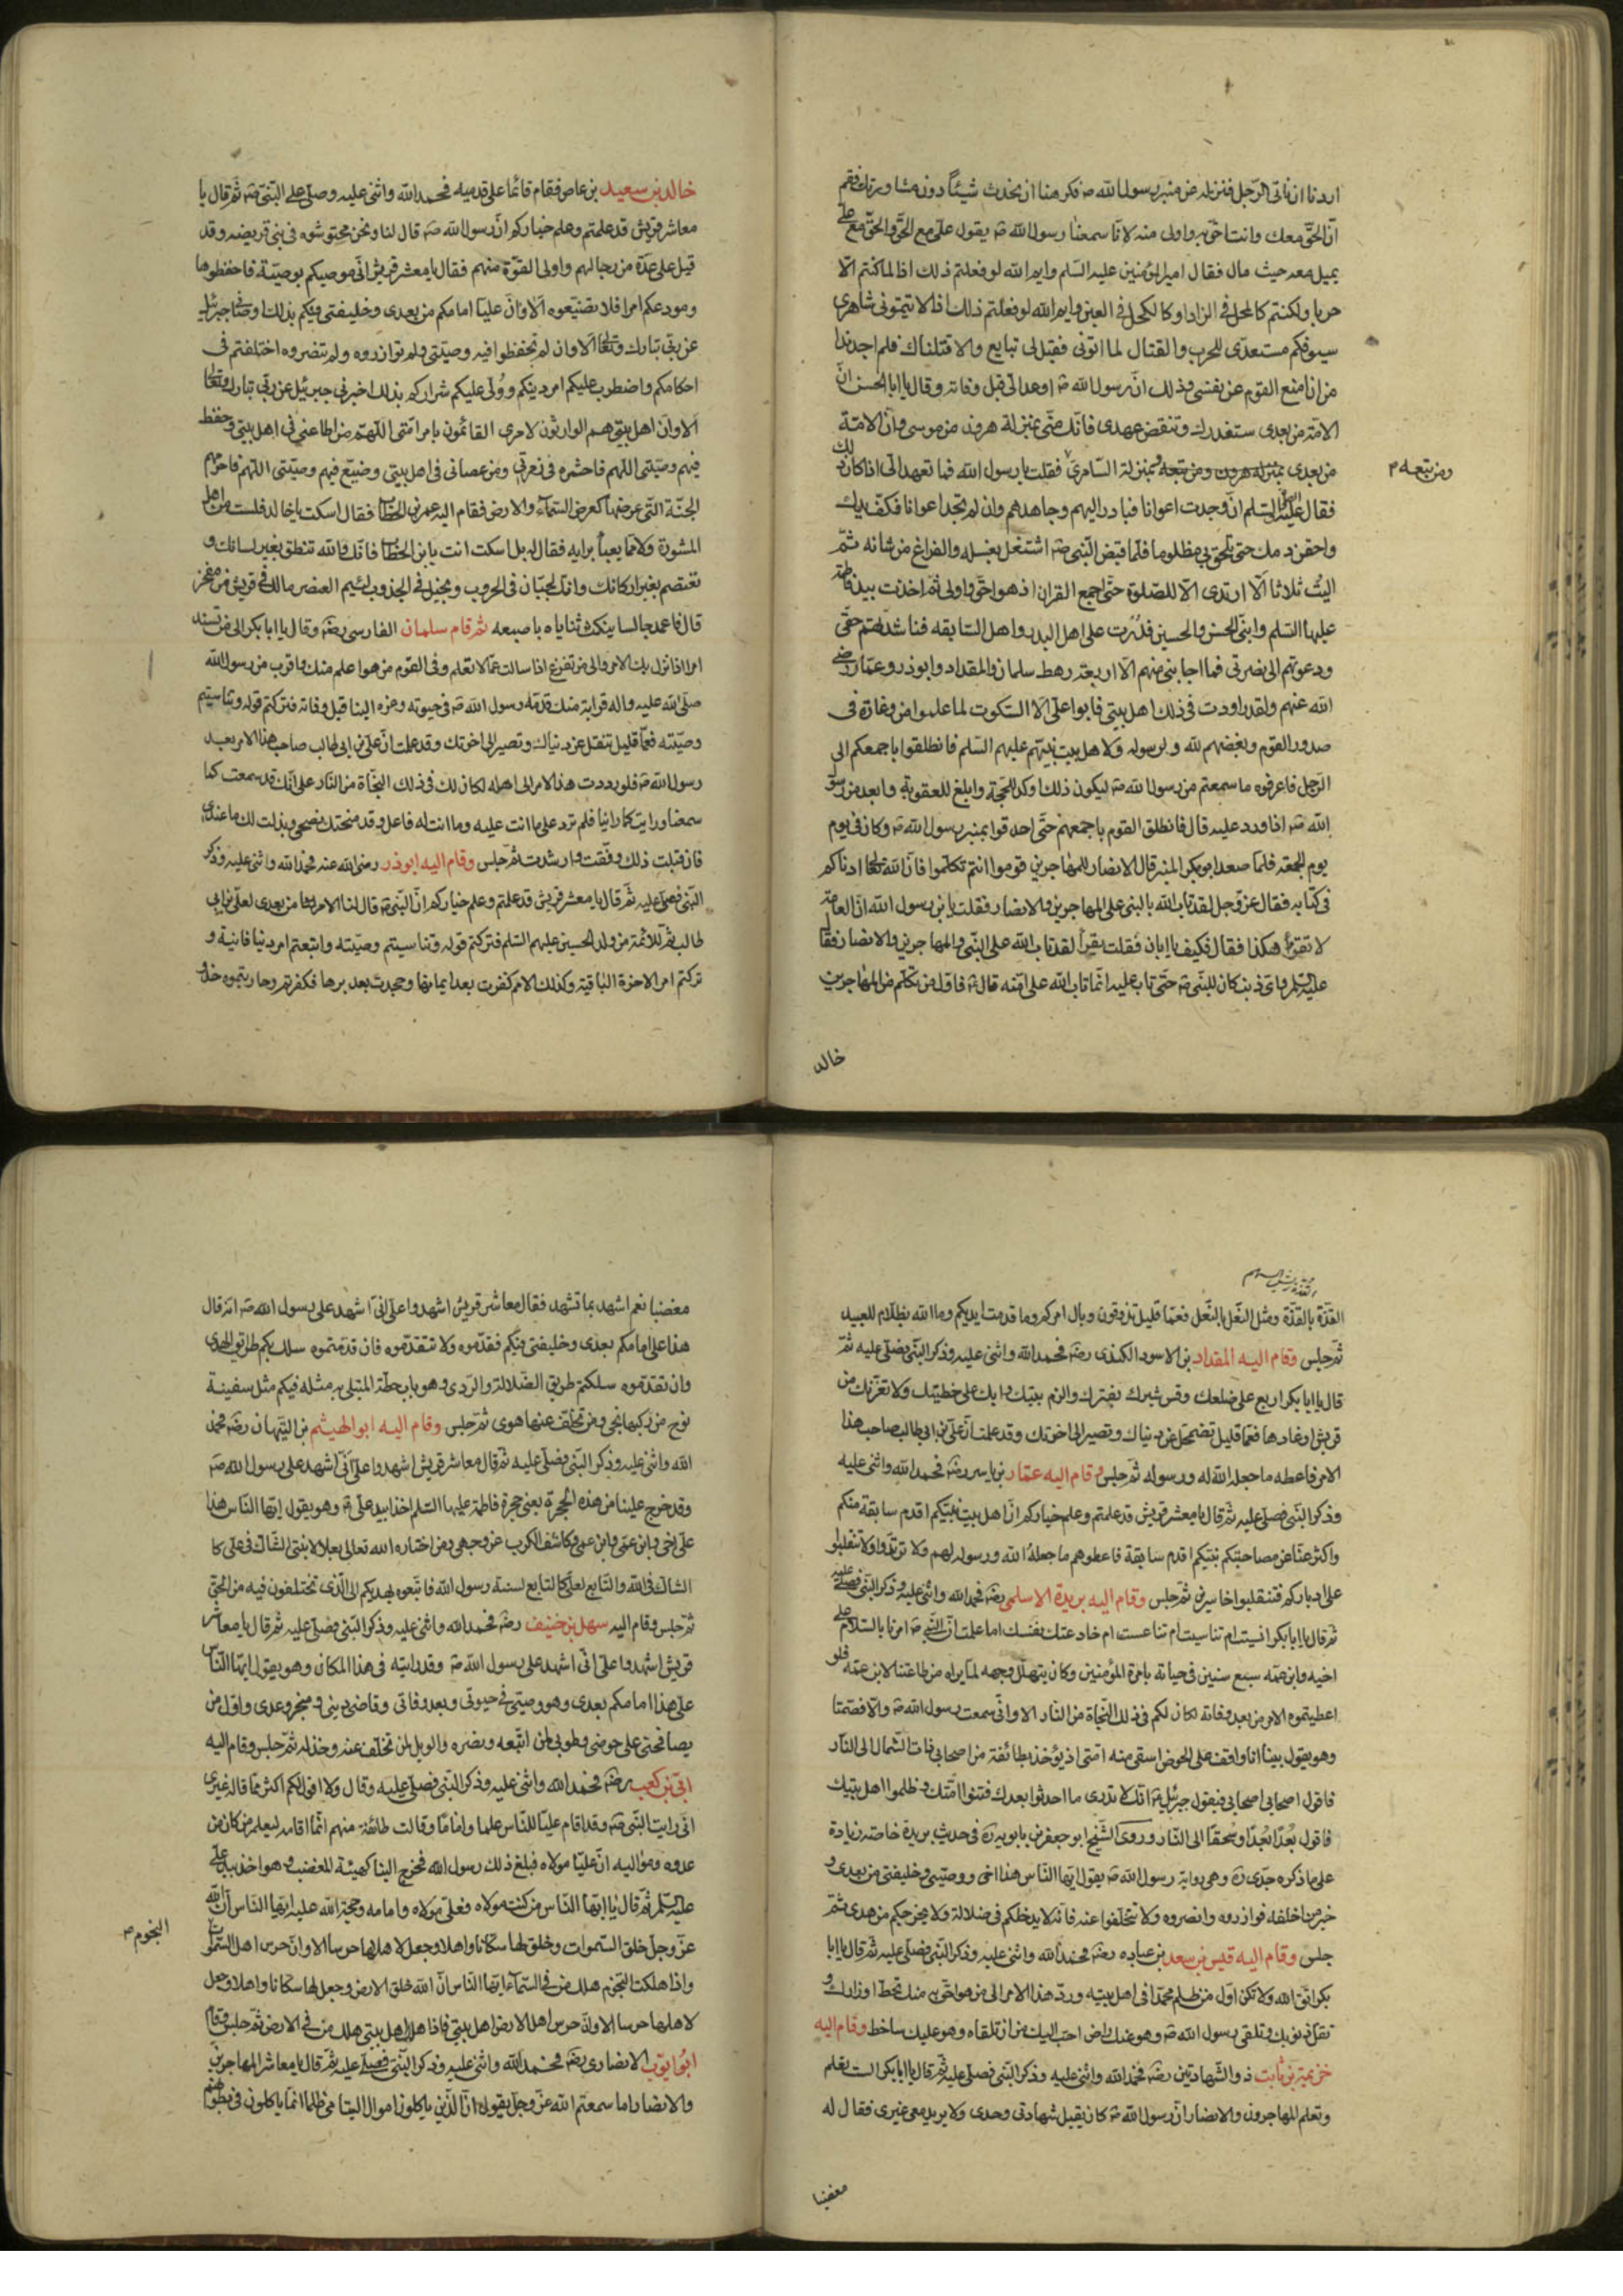 اردنا ان ناتى الرجل فننزله عن منبر رسول الله ص فكرهنا ان نحدث شيئاً دون مشاورتك فقم
ان الحق معك وانت احق به واولى منه لانا سمعنا رسول الله ص يقول على مع الحق والحق مع على
يميل معه حيث مال فقال امير المؤمنين عليه السلم وايم الله لو فعلتم ذلك اذا لما كنتم الا
حربا ولكنتم كالملح فى الزاد او كالكحل فى العين وايم الله لو فعلتم ذلك اذا لاتيتمونى شاهرى
سيوفكم مستعدى للحرب والقتال لما اتونى فقيل لى تبايع والا قتلناك فلم اجد بدا
من ان امنع القوم عن نفسى وذلك ان رسول الله ص اوعد الى قبل وفاته وقال يا ابا الحسن ان
الامة من بعدى ستغدر بك وتنقض عهدى فانك منى بمنزلة هرون من موسى وان الامة
من بعدى بمنزلة هرون ومن تبعه وبمنزلة السامرى فقلت يا رسول الله فما تعهد الى اذا كان ذلك
ومن تبعه م
فقال عليه السلم ان وجدت اعوانا فبادر اليهم وجاهدهم وان لم تجد اعوانا فكف يدك
واحقن دمك حتى تلحق بى مظلوما فلما قبض النبى ص اشتغل بغسله والفراغ من شانه ثم
اليت ثلاثا الا ارتدى الا للصلوة حتى اجمع القران اذ هو احق واولى ثم اخذت بيد فاطمة
عليها السلم وابنى الحسن والحسين فدرت على اهل البدر واهل السابقه فناشدتهم حقى
ودعوتهم الى نصرتى فما اجابنى منهم الا اربعة رهط سلمان والمقداد وابوذر وعمار رضى
الله عنهم ولقد راودت فى ذلك اهل بيتى فابوا على الا السكوت لما علموا من وغارة فى
صدور القوم وبغضهم لله ولرسوله ولاهل بيت نبيهم عليهم السلم فانطلقوا باجمعكم الى
الرجل فاعرفوه ما سمعتم من رسول الله ص ليكون ذلك اوكد للحجة وابلغ للعقوبة وابعد من رسول
الله ص اذا ورد عليه قال فانطلق القوم باجمعهم حتى احدقوا بمنبر رسول الله ص وكان فى يوم
يوم الجمعة فلما صعد ابوبكر المنبر قال الانصار للمهاجرين قوموا انتم تكلموا فان الله تعالى ادناكم
فى كتابه فقال عز وجل لقد تاب الله بالنبى على المهاجرين والانصار فقلت يا بن رسول الله ان العامة
لا تقرؤ هكذا فقال فكيف يا ابان فقلت يقرأ لقد تاب الله على النبى والمهاجرين والانصار فقال
عليه السلم واى ذنب كان للنبى ص حتى تاب عليه انما تاب الله على امته قال ثم فاول من تكلم من المهاجرين
خالد
خالد بن سعيد بن عاص فقام قائما على قدميه فحمد الله واثنى عليه وصلى على النبى ص ثم قال يا
معاشر قريش قد علمتم وعلم خياركم ان رسول الله ص قال لنا ونحن محتوشوه فى بنى قريضه وقد
قبل على عدة من رجالهم واولى القوة منهم فقال يا معشر قريش انى موصيكم بوصية فاحفظوها
ومودعكم امرا فلا تضيعوه الا وان عليا امامكم من بعدى وخليفتى فيكم بذلك اوصانى جبرئيل
عن ربى تبارك وتعالى الا وان لم تحفظوا فيه وصيتى ولم توازروه ولم تنصروه اختلفتم فى
احكامكم واضطرب عليكم امر دينكم وولى عليكم شراركم بذلك اخبرنى جبرئيل عن ربى تبارك وتعالى
الا وان اهل بيتى هم الوارثون لامرى القائمون بامر امتى اللهم من اطاعنى فى اهل بيتى وحفظ
فيهم وصيتى اللهم فاحشره فى زمرتى ومن عصانى فى اهل بيتى وضيع فيهم وصيتى اللهم فاحرمهم
الجنة التى عرضها كعرض السماء والارض فقام اليه عمر بن الخطاب فقال اسكت يا خالد فلست من اهل
المشورة ولا مما يعبأ برايه فقال له بل اسكت انت يا بن الخطاب فانك والله تنطق بغير لسانك و
تعتصم بغير اركانك وانك لجبان فى الحروب وبخيل فى الجذوب لئيم العنصر مالك فى قريش من مفخر
قال فاعمد جالسا ينكث ثناياه باصبعه ثم قام سلمان الفارسى رضه وقال يا ابابكر الى من تسند
امرا اذا نزل بك الامر والى من تفزع اذا سالت عما لا تعلم وفى القوم من هو اعلم منك واقرب من رسول الله
صلى الله عليه واله قرابة منك قدمه رسول الله ص فى حيوته وعزه الينا قبل وفاته فتركتم قوله وتناسيتم
وصيته فعما قليل تنقل عن دنياك وتصير الى اخرتك وقد علمت ان على بن ابى طالب صاحب هذا الامر بعد
رسول الله ص فلو رددت هذا الامر الى اهله لكان لك فى ذلك النجاة من النار على انك قد سمعت كما
سمعنا ورايت كما راينا فلم ترد على ما انت عليه وما انت له فاعل وقد منحتك نصحى وبذلت لك ما عندى
فان قبلت ذلك وفقت وارشدت ثم جلس وقام اليه ابوذر رضى الله عنه فحمد الله واثنى عليه وذكر
النبى فصلى عليه ثم قال يا معشر قريش قد علمتم وعلم خياركم ان النبى ص قال لنا الامر لها من بعدى لعلى بن ابى
طالب ثم للائمة من ولد الحسين عليهم السلم فتركتم قوله وتناسيتم وصيته واتبعتم امر دنيا فانية و
تركتم امر الاخرة الباقية وكذلك الامم كفرت بعد ايمانها وجحدت بعد برها فكفرتم وحاربتموه حذو
القذة بالقذة ومثل النعل بالنعل فعما قليل تذوقون وبال امركم وما قدمت ايديكم وما الله بظلام للعبيد
ثم جلس وقام اليه المقداد بن الاسود الكندى رضه فحمد الله واثنى عليه وذكر النبى فصلى عليه ثم
قال يا ابابكر اربع على ضلعك وقس شبرك بفترك والزم بيتك وابك على خطيئتك ولا تغرنك من
قريش اوغادها فعما قليل تضمحل عن دنياك وتصير الى اخرتك وقد علمت ان على بن ابى طالب صاحب هذا
الامر فاعطه ما جعله الله له ورسوله ثم جلس وقام اليه عمار بن ياسر رضه فحمد الله واثنى عليه
وذكر النبى فصلى عليه ثم قال يا معشر قريش قد علمتم وعلم خياركم ان اهل بيت نبيكم اقدم سابقة منكم
واكثر عناء من مصاحبتكم نبيكم اقدم سابقة فاعطوهم ما جعله الله ورسوله لهم ولا ترتدوا ولا تنقلبوا
على ادباركم فتنقلبوا خاسرين ثم جلس وقام اليه بريدة الاسلمى رضه فحمد الله واثنى عليه وذكر النبى فصلى عليه
ثم قال يا ابابكر انسيت ام تناسيت ام تناعست ام خادعتك نفسك اما علمت ان النبى ص امرنا بالسلام على
اخيه وابن عمه سبع سنين فى حياته بامرة المؤمنين وكان يتهلل وجهه لما يراه من طاعتنا لابن عمه فلو
اعطيتموه الامر من بعد وفاته لكان لكم فى ذلك النجاة من النار الا وانى سمعت رسول الله ص والا فصمتا
وهو يقول بينا انا واقف على الحوض اسقى منه امتى اذ يؤخذ بطائفة من اصحابى ذات الشمال الى النار
فاقول اصحابى اصحابى فيقول جبرئيل ع انك لا تدرى ما احدثوا بعدك فتنوا امتك وظلموا اهل بيتك
فاقول بعدا بعدا وسحقا الى النار وروى الشيخ ابو جعفر بن بابويه ره فى حديث بريدة خاصة زيادة
على ما ذكره جدى ره وهى رواية رسول الله ص يقول ايها الناس هذا اخى ووصيى وخليفتى من بعدى و
خير من اخلفه فوازروه وانصروه ولا تتخلفوا عنه فانه لا يدخلكم فى ضلالة ولا يخرجكم من هدى ثم
جلس وقام اليه قيس بن سعد بن عباده رضه فحمد الله واثنى عليه وذكر النبى فصلى عليه ثم قال يا ابا
بكر اتق الله ولا تكن اول من ظلم محمدا فى اهل بيته ورد هذا الامر الى من هو احق به منك تحط اوزارك و
تقل ذنوبك وتلقى رسول الله ص وهو عنك راض احب اليك من ان تلقاه وهو عليك ساخط وقام اليه
خزيمة بن ثابت ذو الشهادتين رضه فحمد الله واثنى عليه وذكر النبى فصلى عليه ثم قال يا ابابكر الست تعلم
وتعلم المهاجرون والانصار ان رسول الله ص كان يقبل شهادتى وحدى ولا يريد معى غيرى فقال له
مغضبا
مغضبا نعم اشهد بما تشهد فقال معاشر قريش اشهدوا على انى اشهد على رسول الله ص انه قال
هذا على امامكم بعدى وخليفتى فيكم فقدموه ولا تتقدموه فان قدمتموه سلك بكم طريق الهدى
وان تقدتموه سلكتم طريق الضلالة والردى وهو باب حطة المبتلى به مثله فيكم مثل سفينة
نوح من ركبها نجى ومن تخلف عنها هوى ثم جلس وقام اليه ابو الهيثم بن التيهان رضه فحمد
الله واثنى عليه وذكر النبى فصلى عليه ثم قال معاشر قريش اشهدوا على انى اشهد على رسول الله ص
وقد خرج علينا من هذه الحجرة يعنى حجرة فاطمة عليها السلم اخذا بيد على ع وهو يقول ايها الناس هذا
على اخى وابن عمى وكاشف الكرب عن وجهى ومن اختاره الله تعالى بعلا لابنتى الشاك فى على كا
الشاك فى الله والتابع لعلى كالتابع لسنة رسول الله فاتبعوه يهديكم الى الذى تختلفون فيه من الحق
ثم جلس وقام اليه سهل بن حنيف رضه فحمد الله واثنى عليه وذكر النبى فصلى عليه ثم قال يا معاشر
قريش اشهدوا على انى اشهد على رسول الله ص وقد رايته فى هذا المكان وهو يقول ايها الناس
على هذا امامكم بعدى وهو وصيى فى حيوتى وبعد وفاتى وقاضى دينى ومنجز وعدى واول من
يصافحنى على حوضى وطوبى لمن اتبعه ونصره والويل لمن تخلف عنه وخذله ثم جلس وقام اليه
ابى بن كعب رضه فحمد الله واثنى عليه وذكر النبى فصلى عليه وقال ولا اقول لكم اكثر مما قاله غيرى
انى رايت النبى ص وقد اقام عليا للناس علما واماما وقالت طائفة منهم انما اقامه ليعلم من كان من
عدوه ومواليه ان عليا مولاه فبلغ ذلك رسول الله فخرج الينا كهيئة المغضب وهو اخذ بيد على
عليه السلم ثم قال يا ايها الناس من كنت مولاه فعلى مولاه وامامه وحجة الله عليه ايها الناس ان الله
عز وجل خلق السموات وخلق لها سكانا واهلا وجعل لاهلها حرسا الا وان حرس اهل السموات
النجوم ص
واذا هلكت النجوم هلك من فى السماء ايها الناس ان الله خلق الارض وجعل لها سكانا واهلا وجعل
لاهلها حرسا الا وان حرس اهل الارض اهل بيتى فاذا هلك اهل بيتى هلك من فى الارض ثم جلس وقام
ابو ايوب الانصارى رضه فحمد الله واثنى عليه وذكر النبى فصلى عليه ثم قال يا معاشر المهاجرين
والانصار اما سمعتم الله عز وجل يقول ان الذين ياكلون اموال اليتامى ظلما انما ياكلون فى بطونهم